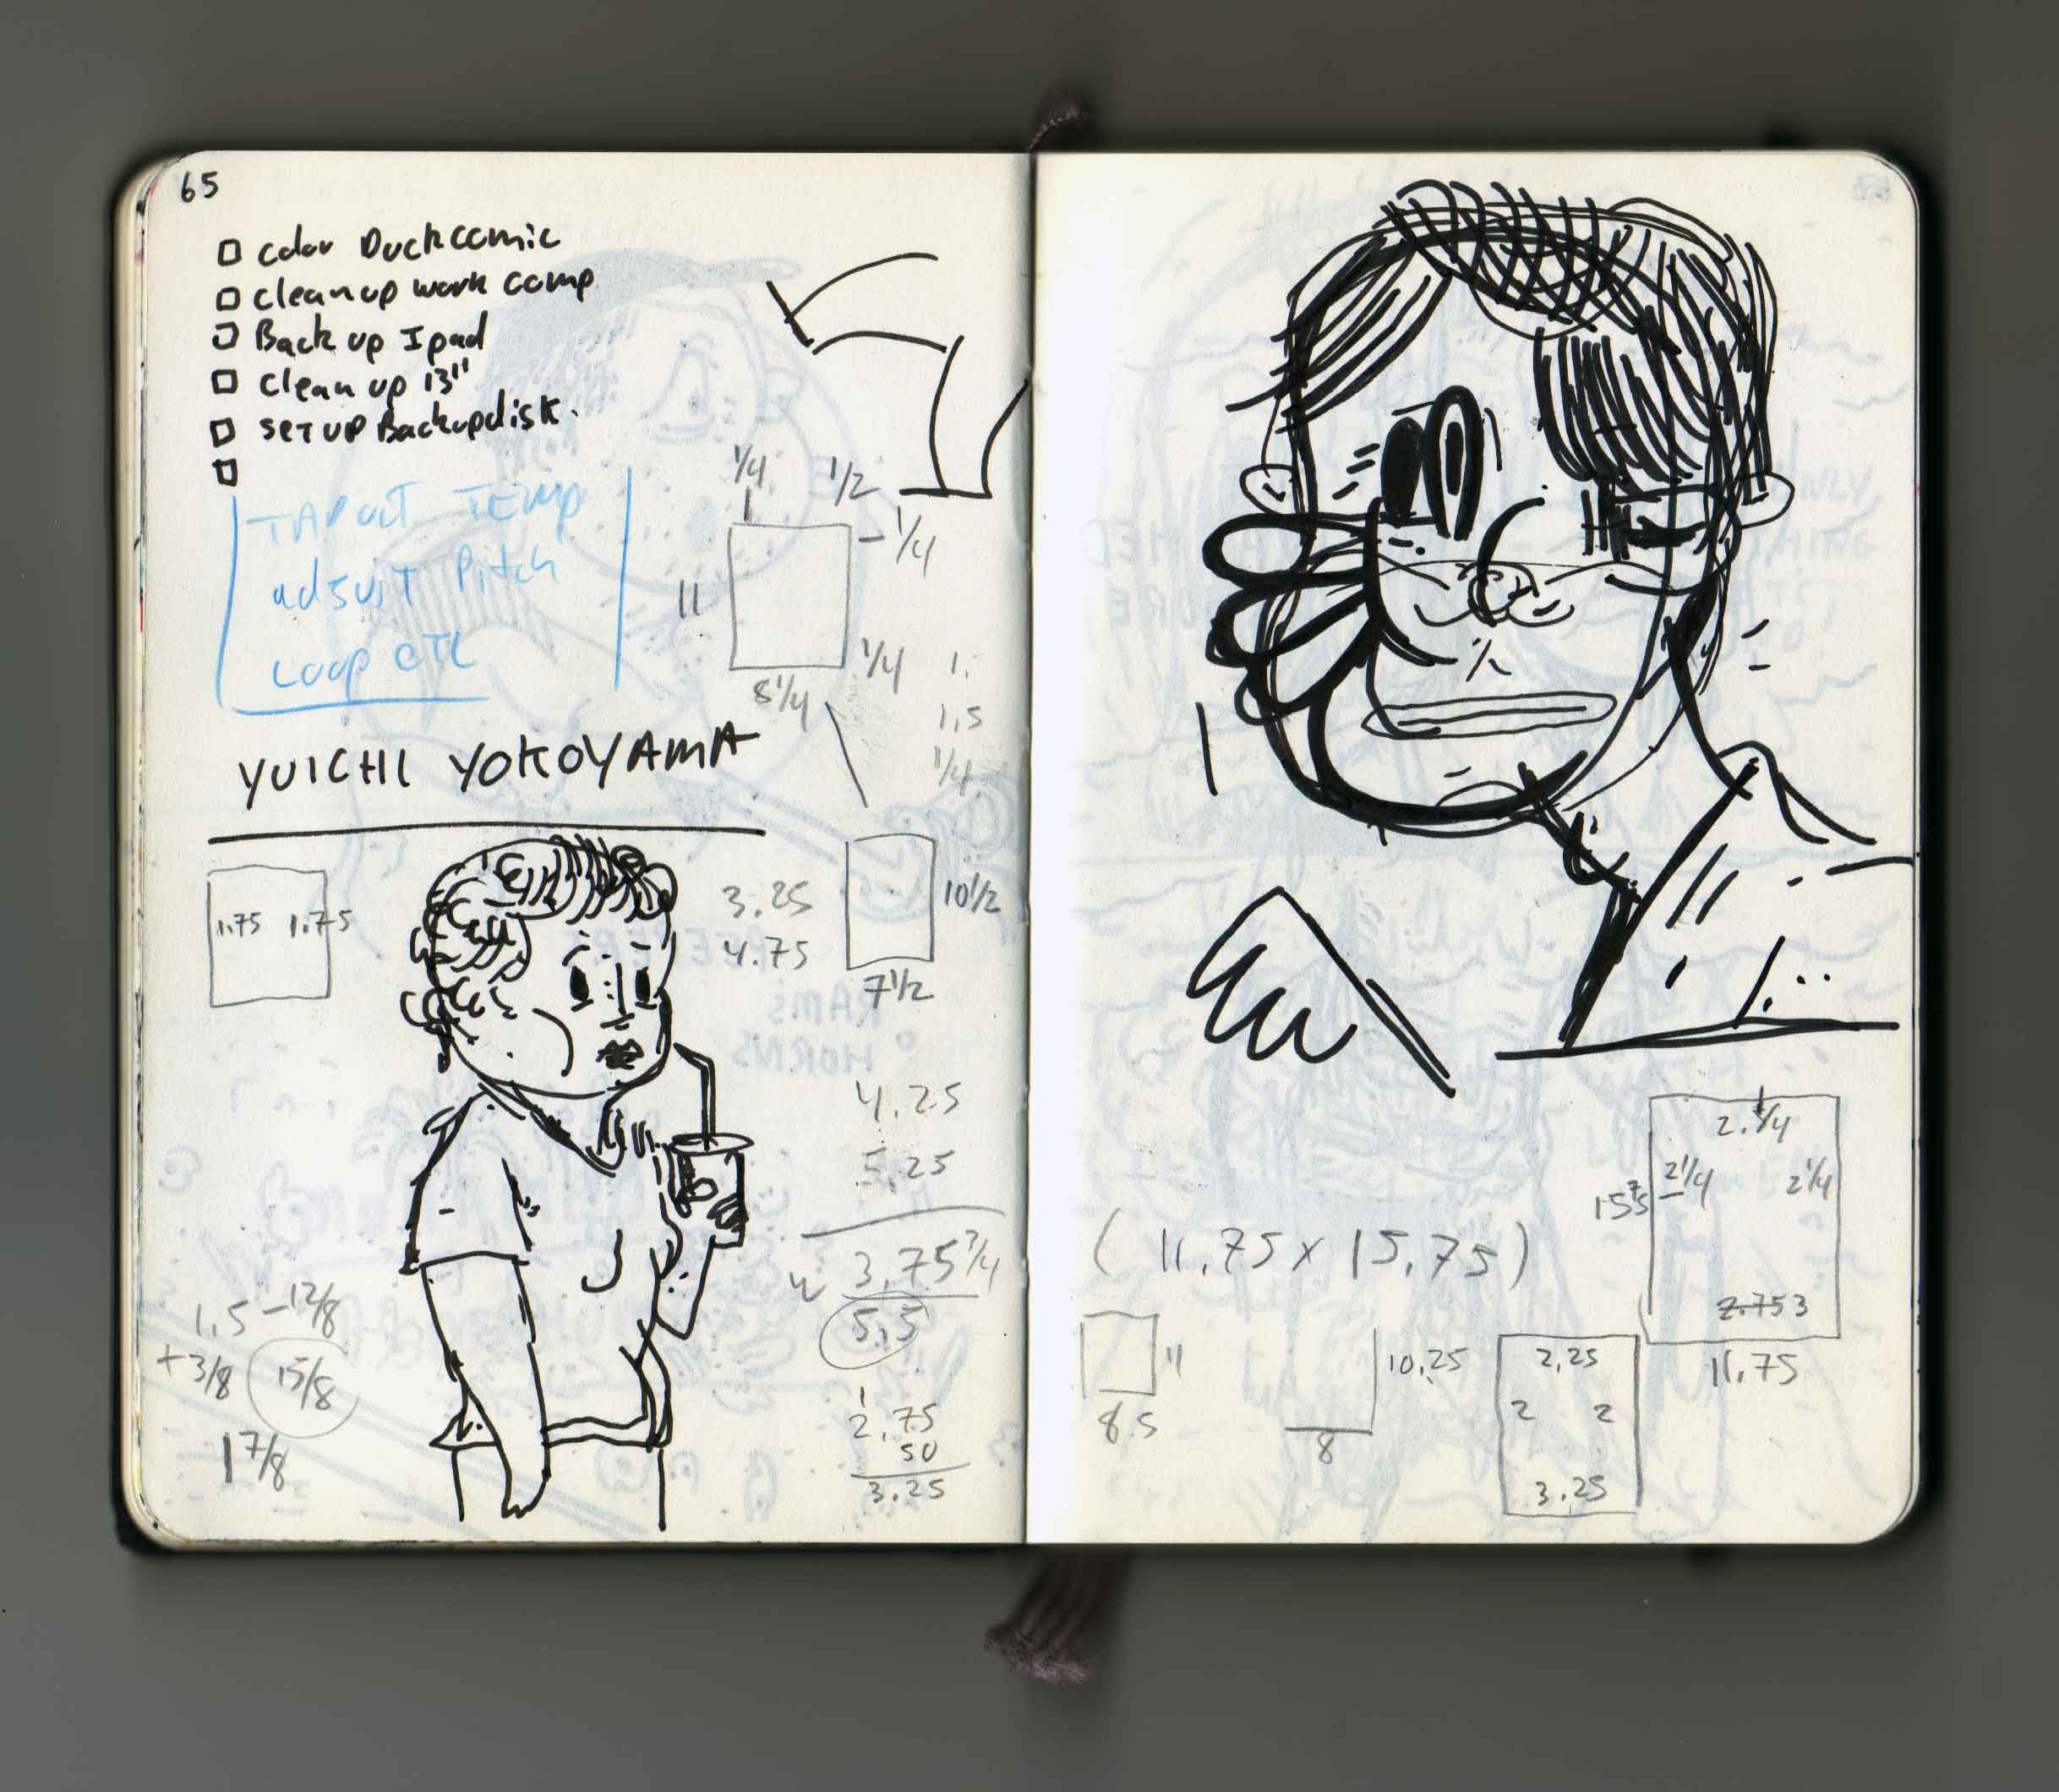 65
color Duckcomic
cleanup work comp
Back up Ipad
clean up 13"
SETUP Backupdisk.
TAPOUT TEMP
adsuit Pitch
Loop ETC
1/4
1/2
1/4
11
1/4
8 1/4
1.
1.5
1/4
YUICHI YOKOYAMA
1.75 1.75
3.25
4.75
10 1/2
7 1/2
RAMS
HORNS
4.25
5.25
3.75 3/4
5.5
1.5 - 12/8
+ 3/8
15/8
1 7/8
1
2.75
50
3.25
2.1/4
2 1/4
2 1/4
2.75 3
11.75
(11.75 x 15.75)
11
8.5
10.25
8
2.25
2 2
3.25